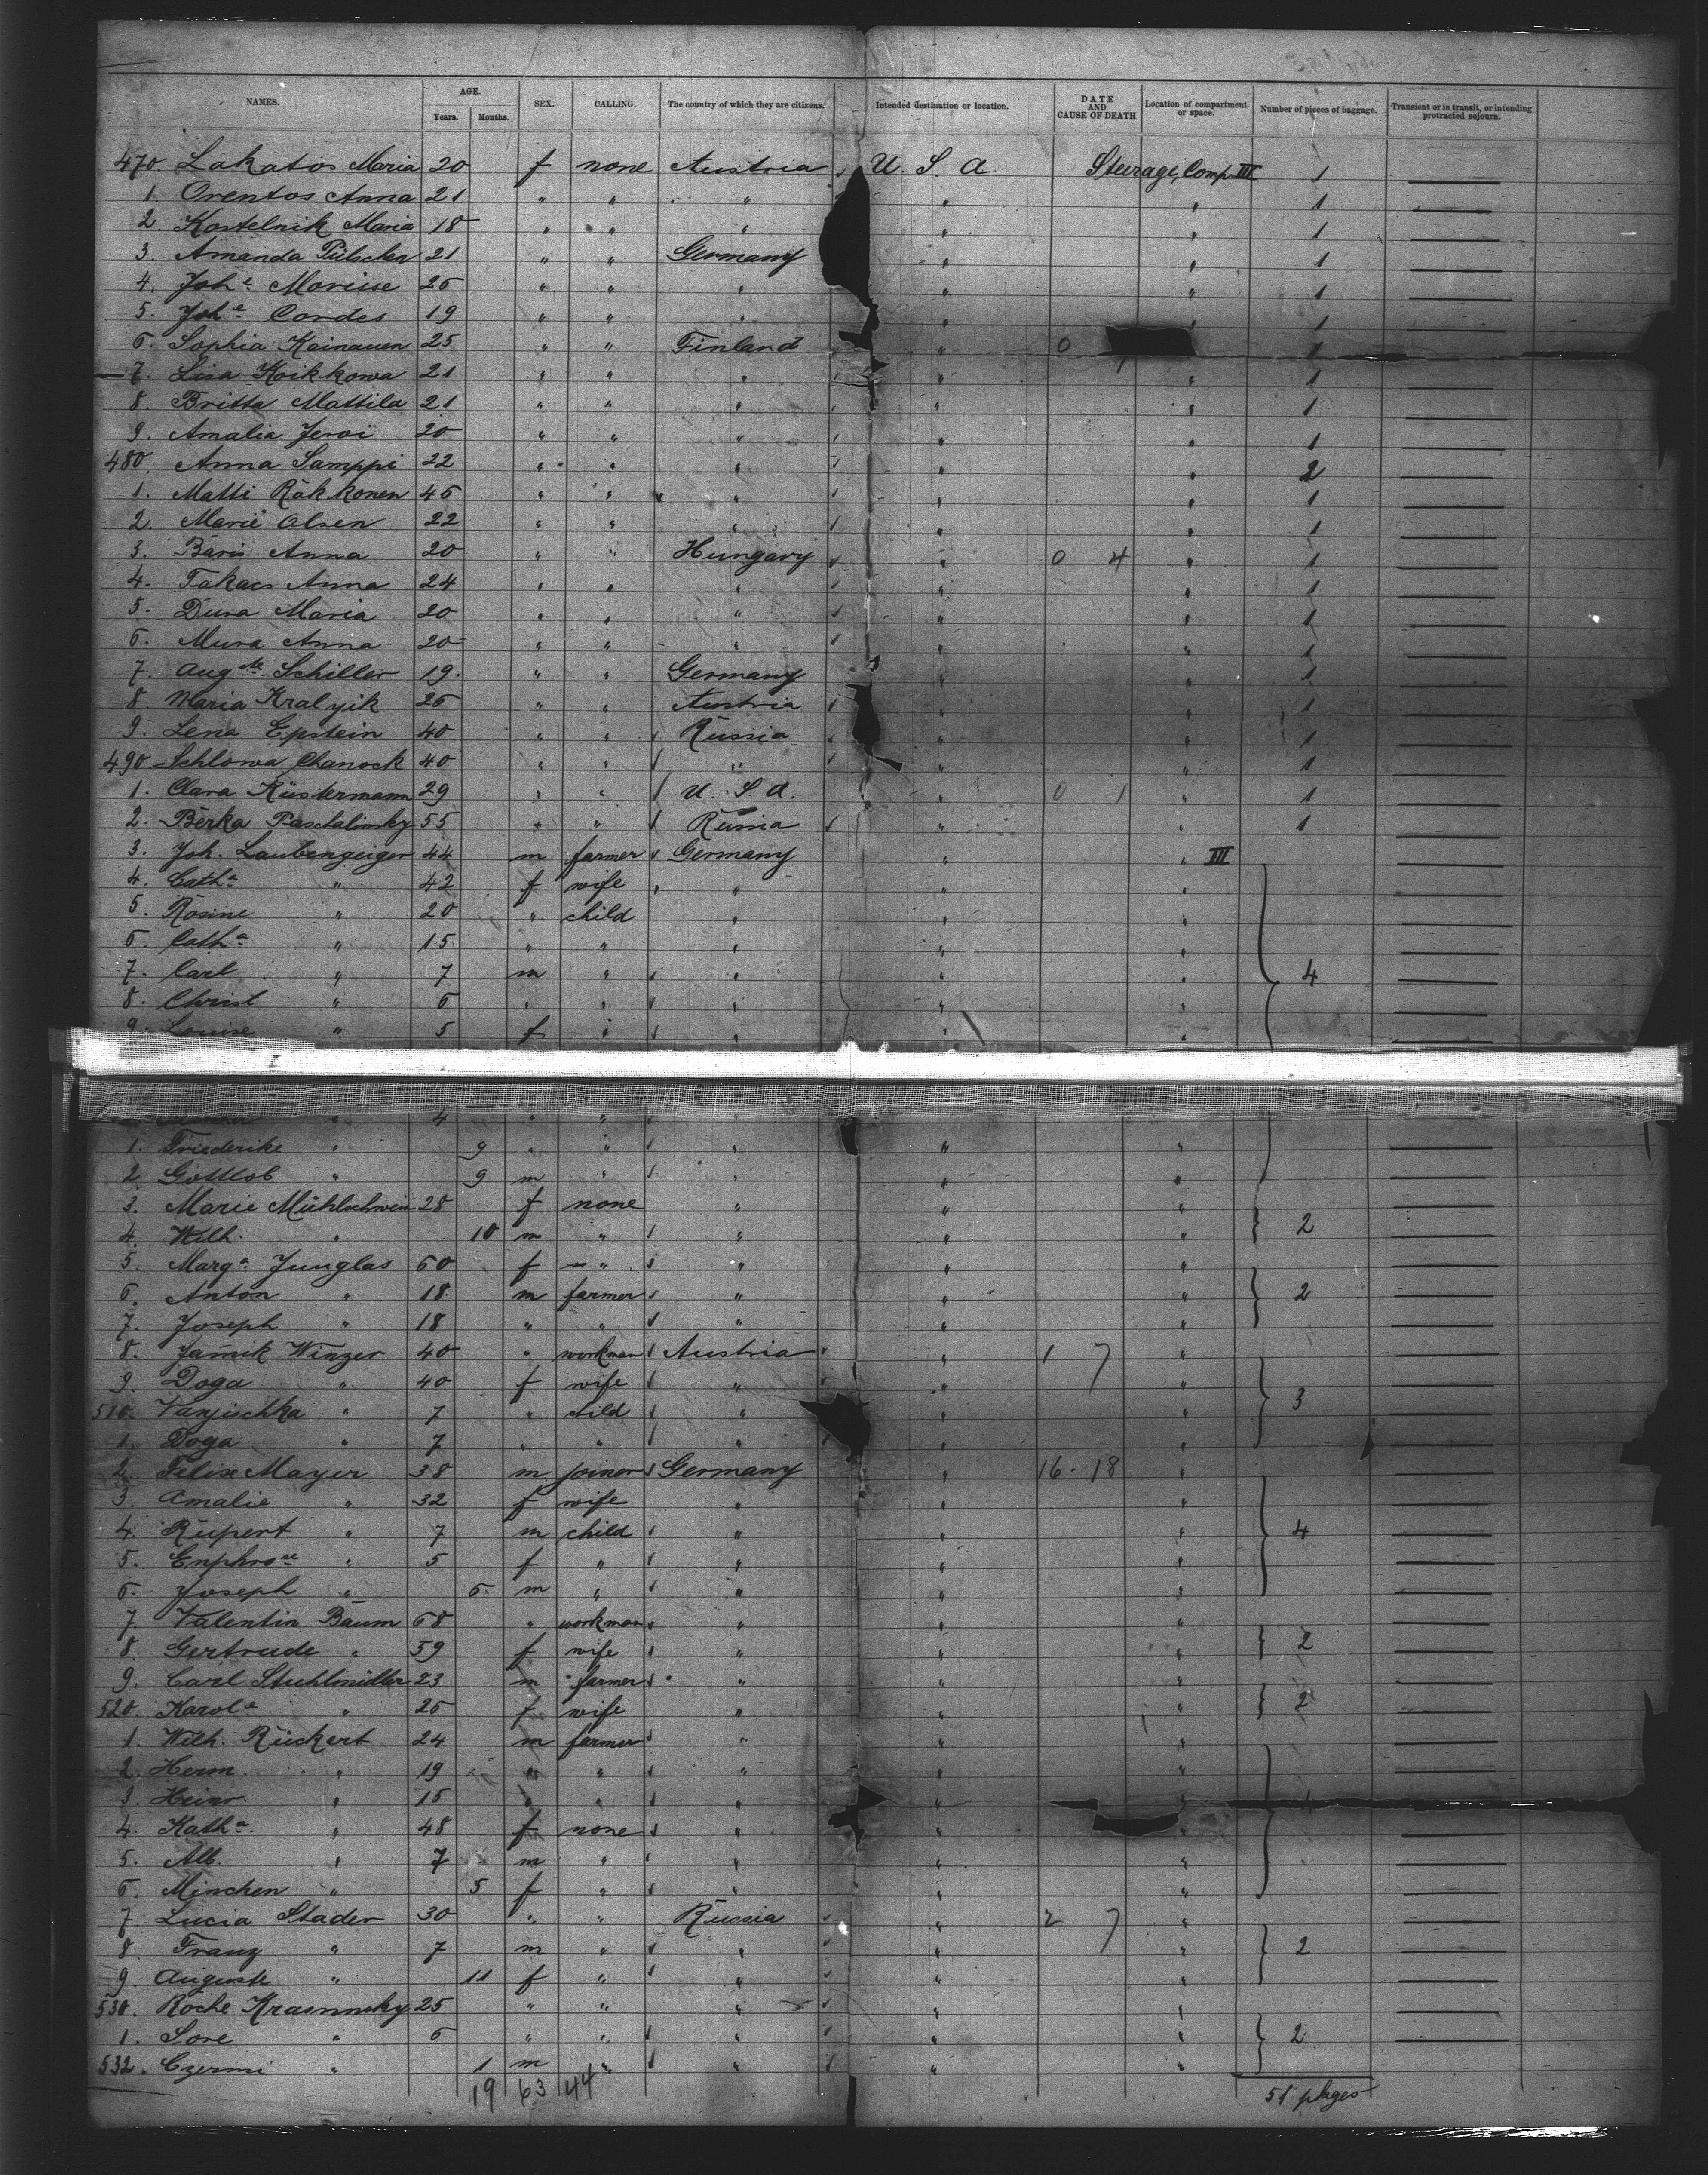 NAMES. AGE. Years. Months. SEX. CALLING. The country of which they are citizens. Intended destination or location. DATE AND CAUSE OF DEATH Location of compartment or space. Number of pieces of baggage. Transient or in transit, or intending protracted sojourn.
470. Lakatos Maria 20 f none Austria U. S. A. Steerage, Comp. III 1
1. Orentos Anna 21 " " " " " 1
2. Kostelnik Maria 18 " " " " " 1
3. Amanda 21 " " Germany " " 1
4. Joh.e 26 " " " " " 1
5. Joh.e Cordes 19 " " " " " 1
6. Sophia Kainauen 25 " " Finland " 0 1
7. Lisa Koikkowa 21 " " " " " 1
8. Britta Mattila 21 " " " " " 1
9. Amalia Jervi 20 " " " " " 1
480. Anna Samppi 22 " " " " " 2
1. Matti Räkkonen 46 " " " " " 1
2. Marie Olsen 22 " " " " " 1
3. Baris Anna 20 " " Hungary " 0 4 " 1
4. Takacs Anna 24 " " " " " 1
5. Dura Maria 20 " " " " " 1
6. Mura Anna 20 " " " " " 1
7. Aug.ste Schiller 19. " " Germany " " 1
8. Maria Kralyik 26 " " Austria " " 1
9. Lena Epstein 40 " " Russia " " 1
490. Schlowa Chanock 40 " " " " " 1
1. Clara Küstermann 29 " " U. S. A. " 0 1 " 1
2. Berka Paschalinsky 55 " " Russia " " 1
3. Joh. Laubengeiger 44 m farmer Germany " " III
4. Cath.a " 42 f wife " " "
5. Rosine " 20 " child " " "
6. Cath.a " 15 " " " " "
7. Carl " 7 m " " " " 4
8. Christ " 6 " " " " "
9. Louise " 5 f " " " "
" 4 " " " "
1. Friederike " 9 " " " " "
2. Gottlob " 9 m " " " "
3. Marie Mühlschwein 28 f none " " "
4. Wilh. " 10 m " " " " 2
5. Marg.a Junglas 60 f " " " "
6. Anton " 18 m farmer " " " 2
7. Joseph " 18 " " " " "
8. Jamik Winzer 40 " workman Austria " 1 7 "
9. Doga " 40 f wife " " "
510. Vanjischka " 7 " child " " " 3
1. Doga " 7 " " " " "
2. Felix Mayer 38 m joiner Germany " 16. 18 "
3. Amalie " 32 f wife " " "
4. Rupert " 7 m child " " " 4
5. Enphros.ne " 5 f " " " "
6. Joseph " 6. m " " " "
7. Valentin Baum 68 " workman " " "
8. Gertrude " 59 f wife " " " 2
9. Carl Stuhlmüller 23 m farmer " " "
520. Karol.e " 26 f wife " " " 2
1. Wilh. Rückert 24 m farmer " " "
2. Herm. " 19 " " " " "
3. Heinr. " 15 " " " " "
4. Kath.a " 48 f none " " "
5. Alb. " 7 m " " " "
6. Minchen " 5 f " " " "
7. Lucia Stader 30 " " Russia " 2 7 "
8. Franz " 7 m " " " " 2
9. Auguste " 11 f " " " "
530. Roche Krasninsky 25 " " " " "
1. Sore " 6 " " " " " 2
532. Czerni " 1 m " " " "
19 63 44 51 plages